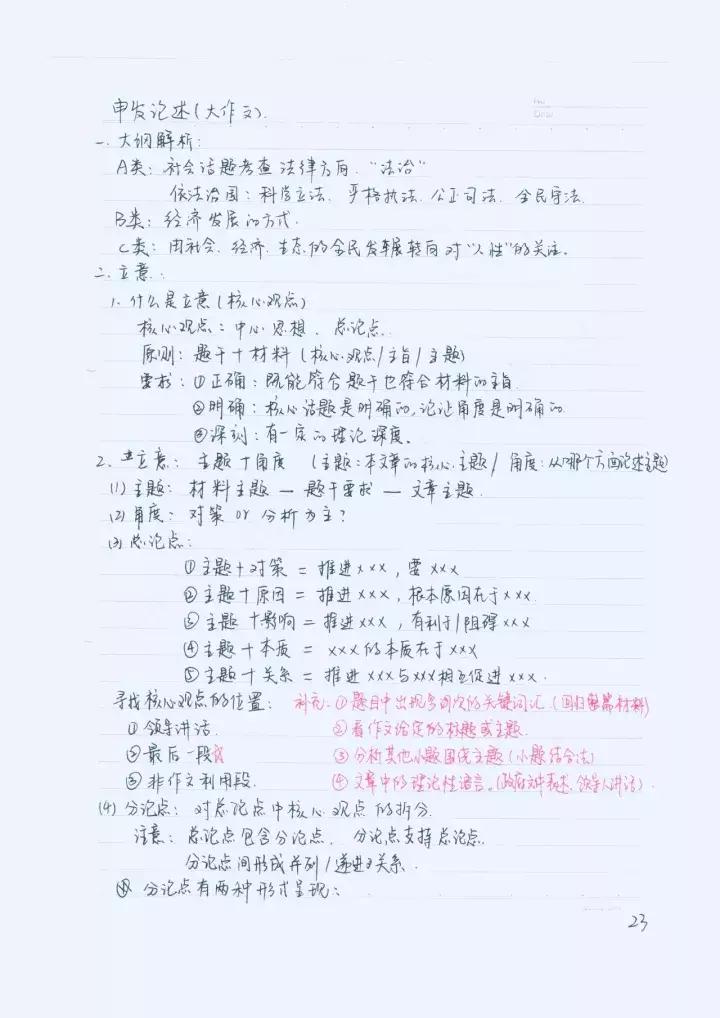 申发论述(大作文).
一. 大纲解析:
A类: 社会话题考查 法律方向. "法治"
依法治国: 科学立法. 严格执法. 公正司法. 全民守法.
B类: 经济发展的方式.
C类: 由社会. 经济. 生态的全民发展转向对"人性"的关注.
二. 立意:
1. 什么是立意(核心观点)
核心观点: 中心思想. 总论点.
原则: 题干+材料(核心观点/主旨/主题)
要求: ①正确: 既能符合题干也符合材料的主旨.
②明确: 核心话题是明确的, 论证角度是明确的.
③深刻: 有一定的理论深度.
2. 立意: 主题+角度 (主题:本文章的核心主题/ 角度:从哪个方面论述主题)
(1) 主题: 材料主题 — 题干要求 — 文章主题.
(2) 角度: 对策 or 分析为主?
(3) 总论点:
①主题+对策 = 推进xxx, 要xxx
②主题+原因 = 推进xxx, 根本原因在于xxx.
③主题+影响 = 推进xxx, 有利于/阻碍xxx
④主题+本质 = xxx的本质在于xxx
⑤主题+关系 = 推进xxx与xxx相互促进xxx.
寻找核心观点的位置: 补充: ①题目中出现多词次的关键词汇(回归材料)
①领导讲话. ②看作文给定的标题或主题.
②最后一段 ③分析其他小题围绕主题(小题结合法)
③非作文利用段. ④文章中的理论性语言.(政府文件表述.领导人讲话).
(4) 分论点: 对总论点中核心观点的拆分.
注意: 总论点包含分论点. 分论点支持总论点.
分论点间形成并列/递进关系.
分论点有两种形式呈现:
23